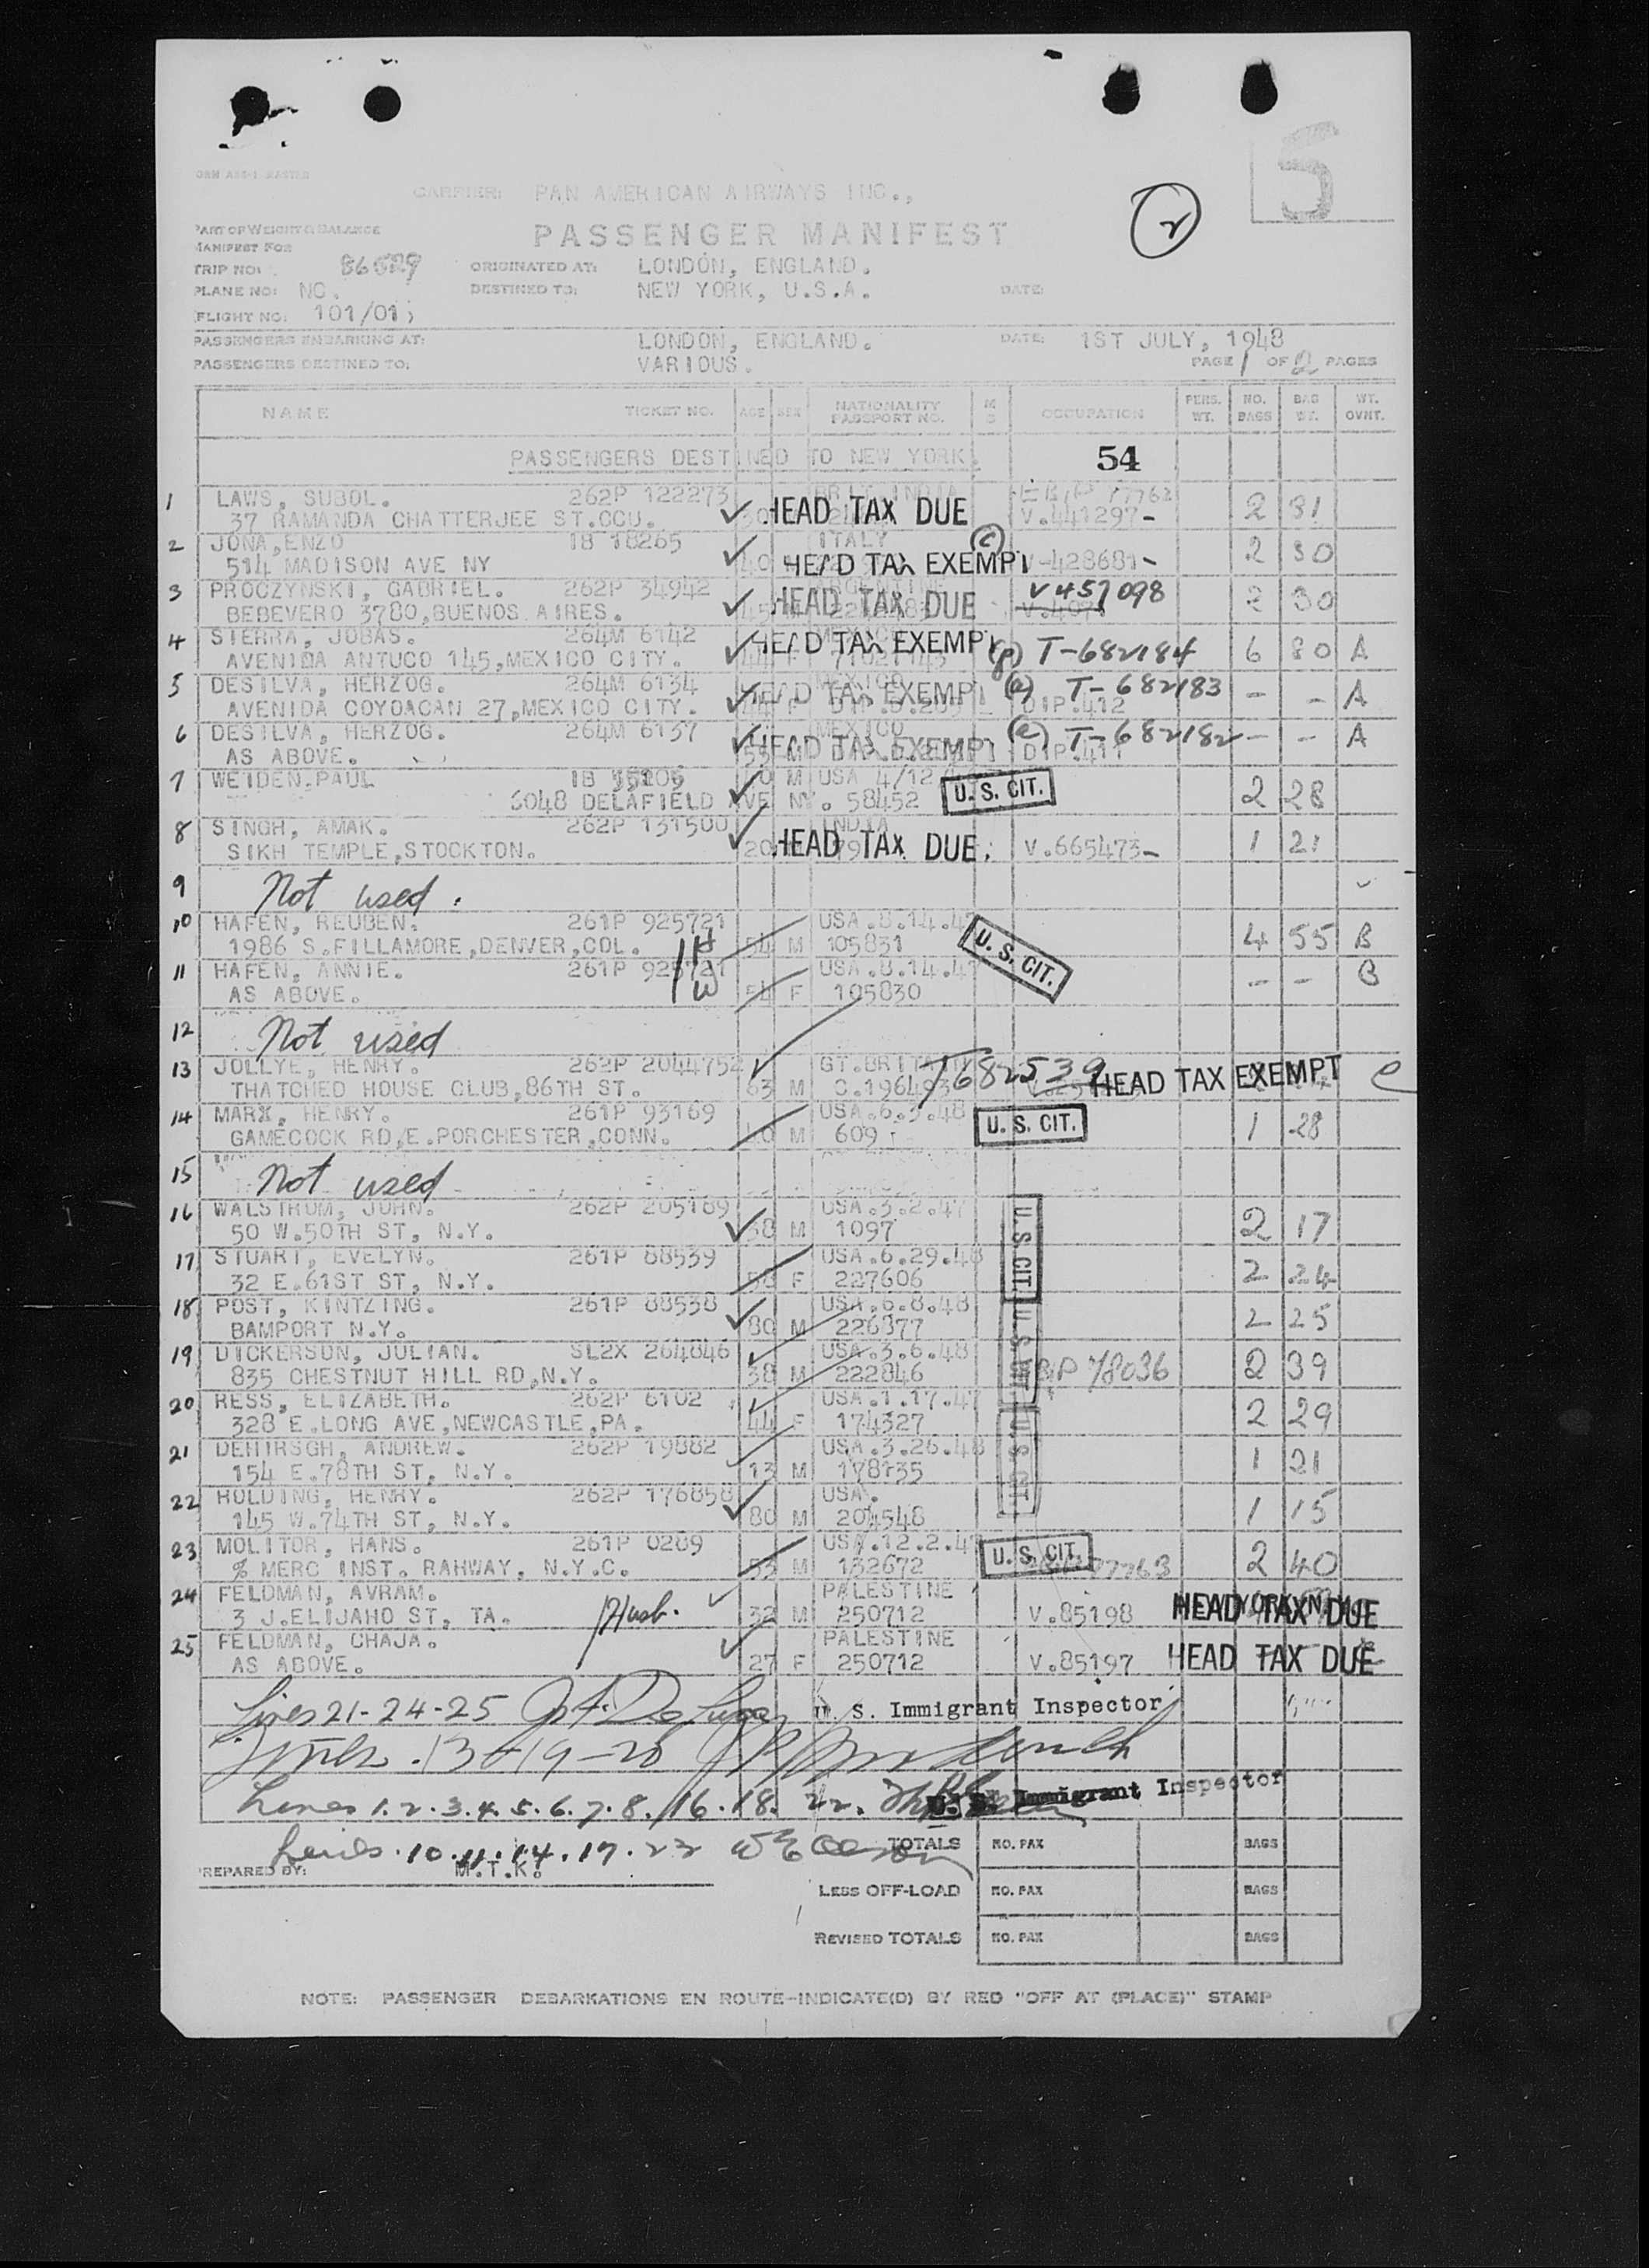 CARRIER: PAN AMERICAN AIRWAYS INC.,
S
2
PART OF WEIGHT & BALANCE
MANIFEST FOR
PASSENGER MANIFEST
TRIP NO: 86529 ORIGINATED AT: LONDON, ENGLAND.
PLANE NO: NC. DESTINED TO: NEW YORK, U.S.A. DATE:
FLIGHT NO: 101/01;
PASSENGERS EMBARKING AT: LONDON, ENGLAND. DATE: 1ST JULY, 1948
PASSENGERS DESTINED TO: VARIOUS. PAGE 1 OF 2 PAGES
NAME TICKET NO. AGE SEX NATIONALITY PASSPORT NO. M S OCCUPATION PERS. WT. NO. BAGS BAG WT. WT. OVHT.
PASSENGERS DESTINED TO NEW YORK. 54
1 LAWS, SUBOL. 262P 122273 BRIT.INDIA
37 RAMANDA CHATTERJEE ST.CCU. HEAD TAX DUE V.441297- 2 31
2 JONA,ENZO IB 18265 ITALY (c)
514 MADISON AVE NY 40 HEAD TAX EXEMPT V-428681- 2 30
3 PROCZYNSKI, GABRIEL. 262P 34942 ARGENTINE V457098
BEBEVERO 3780,BUENOS AIRES. 45 HEAD TAX DUE 2 30
4 SIERRA, JOBAS. 264M 6142 MEXICO HEAD TAX EXEMPT
AVENIDA ANTUCO 145,MEXICO CITY. 44 F (p) T-682184 6 80 A
5 DESILVA, HERZOG. 264M 6134 MEXICO HEAD TAX EXEMPT (e) T-682183
AVENIDA COYOACAN 27,MEXICO CITY. F DIP.412 - - A
6 DESILVA, HERZOG. 264M 6137 MEXICO HEAD TAX EXEMPT (e) T-682182
AS ABOVE. 55 M DIP.411 - - A
7 WEIDEN.PAUL IB M USA 4/12
6048 DELAFIELD AVE NY. 58452 U. S. CIT. 2 28
8 SINGH, AMAK. 262P 131500 INDIA
SIKH TEMPLE,STOCKTON. 20 HEAD TAX DUE. V.665473- 1 21
9 Not used.
10 HAFEN, REUBEN. 261P 925721 USA.8.14.47
1986 S.FILLAMORE,DENVER,COL. H 54 M 105831 U. S. CIT. 4 55 B
11 HAFEN, ANNIE. 261P 925721 USA.8.14.47
AS ABOVE. W 54 F 105830 - - B
12 Not used
13 JOLLYE, HENRY. 262P 2044752 GT.BRITAIN T682539
THATCHED HOUSE CLUB,86TH ST. 63 M HEAD TAX EXEMPT e
14 MARX, HENRY. 261P 93169 USA.6.3.48
GAMECOCK RD,E.PORCHESTER,CONN. M 609 U. S. CIT. 1 28
15 Not used
16 WALSTROM, JOHN. 262P 205189 USA.3.2.47
50 W.50TH ST, N.Y. 38 M 1097 U. S. CIT. 2 17
17 STUART, EVELYN. 261P 88539 USA.6.29.48
32 E.61ST ST, N.Y. F 227606 2 24
18 POST, KINTZING. 261P 88538 USA.6.8.48
BAMPORT N.Y. 80 M 226877 U. S. CIT. 2 25
19 DICKERSON, JULIAN. SL2X 264846 USA.3.6.48
835 CHESTNUT HILL RD,N.Y. 38 M 222846 2 39
20 RESS, ELIZABETH. 262P 6102 USA.1.17.47
328 E.LONG AVE,NEWCASTLE,PA. 44 F 174327 U. S. CIT. 2 29
21 DEHIRSGH, ANDREW. 262P 19882 USA.3.26.48
154 E.78TH ST, N.Y. 13 M 178135 1 21
22 HOLDING, HENRY. 262P 176858 USA.
145 W.74TH ST, N.Y. 80 M 204548 1 15
23 MOLITOR, HANS. 261P 0289 USA.12.2.47
% MERC INST. RAHWAY, N.Y.C. 53 M 132672 U. S. CIT. 2 40
24 FELDMAN, AVRAM. PALESTINE
3 J.ELIJAHO ST, TA. Husb. 32 M 250712 V.85198 HEAD TAX DUE
25 FELDMAN, CHAJA. PALESTINE
AS ABOVE. 27 F 250712 V.85197 HEAD TAX DUE
Lines 21-24-25 U. S. Immigrant Inspector
13-19-20
Lines 1.2.3.4.5.6.7.8.16.18.22. U. S. Immigrant Inspector
Lines.10.11.14.17.23 TOTALS NO. PAX BAGS
PREPARED BY: M.T.K.
LESS OFF-LOAD NO. PAX BAGS
REVISED TOTALS NO. PAX BAGS
NOTE: PASSENGER DEBARKATIONS EN ROUTE-INDICATE(D) BY RED "OFF AT (PLACE)" STAMP